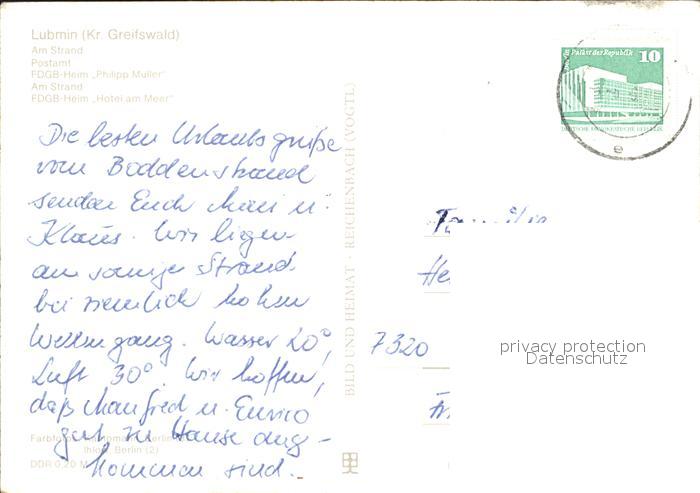 Lubmin (Kr. Greifswald)
Am Strand
Postamt
FDGB-Heim „Philipp Müller"
Am Strand
FDGB-Heim „Hotel am Meer"
Die besten Urlaubsgrüße
vom Boddenstrand
senden Euch u.
Klaus. Wir liegen
am sonnigen Strand
bei ziemlich hohem
Wellengang. Wasser 20°,
Luft 30°. Wir hoffen,
daß Manfred u. Enrico
gut zu Hause ange-
kommen sind.
DDR 0,20 M
BILD UND HEIMAT · REICHENBACH (VOGTL)
Palast der Republik 10
DEUTSCHE DEMOKRATISCHE REPUBLIK
e
He
7320
privacy protection
Datenschutz